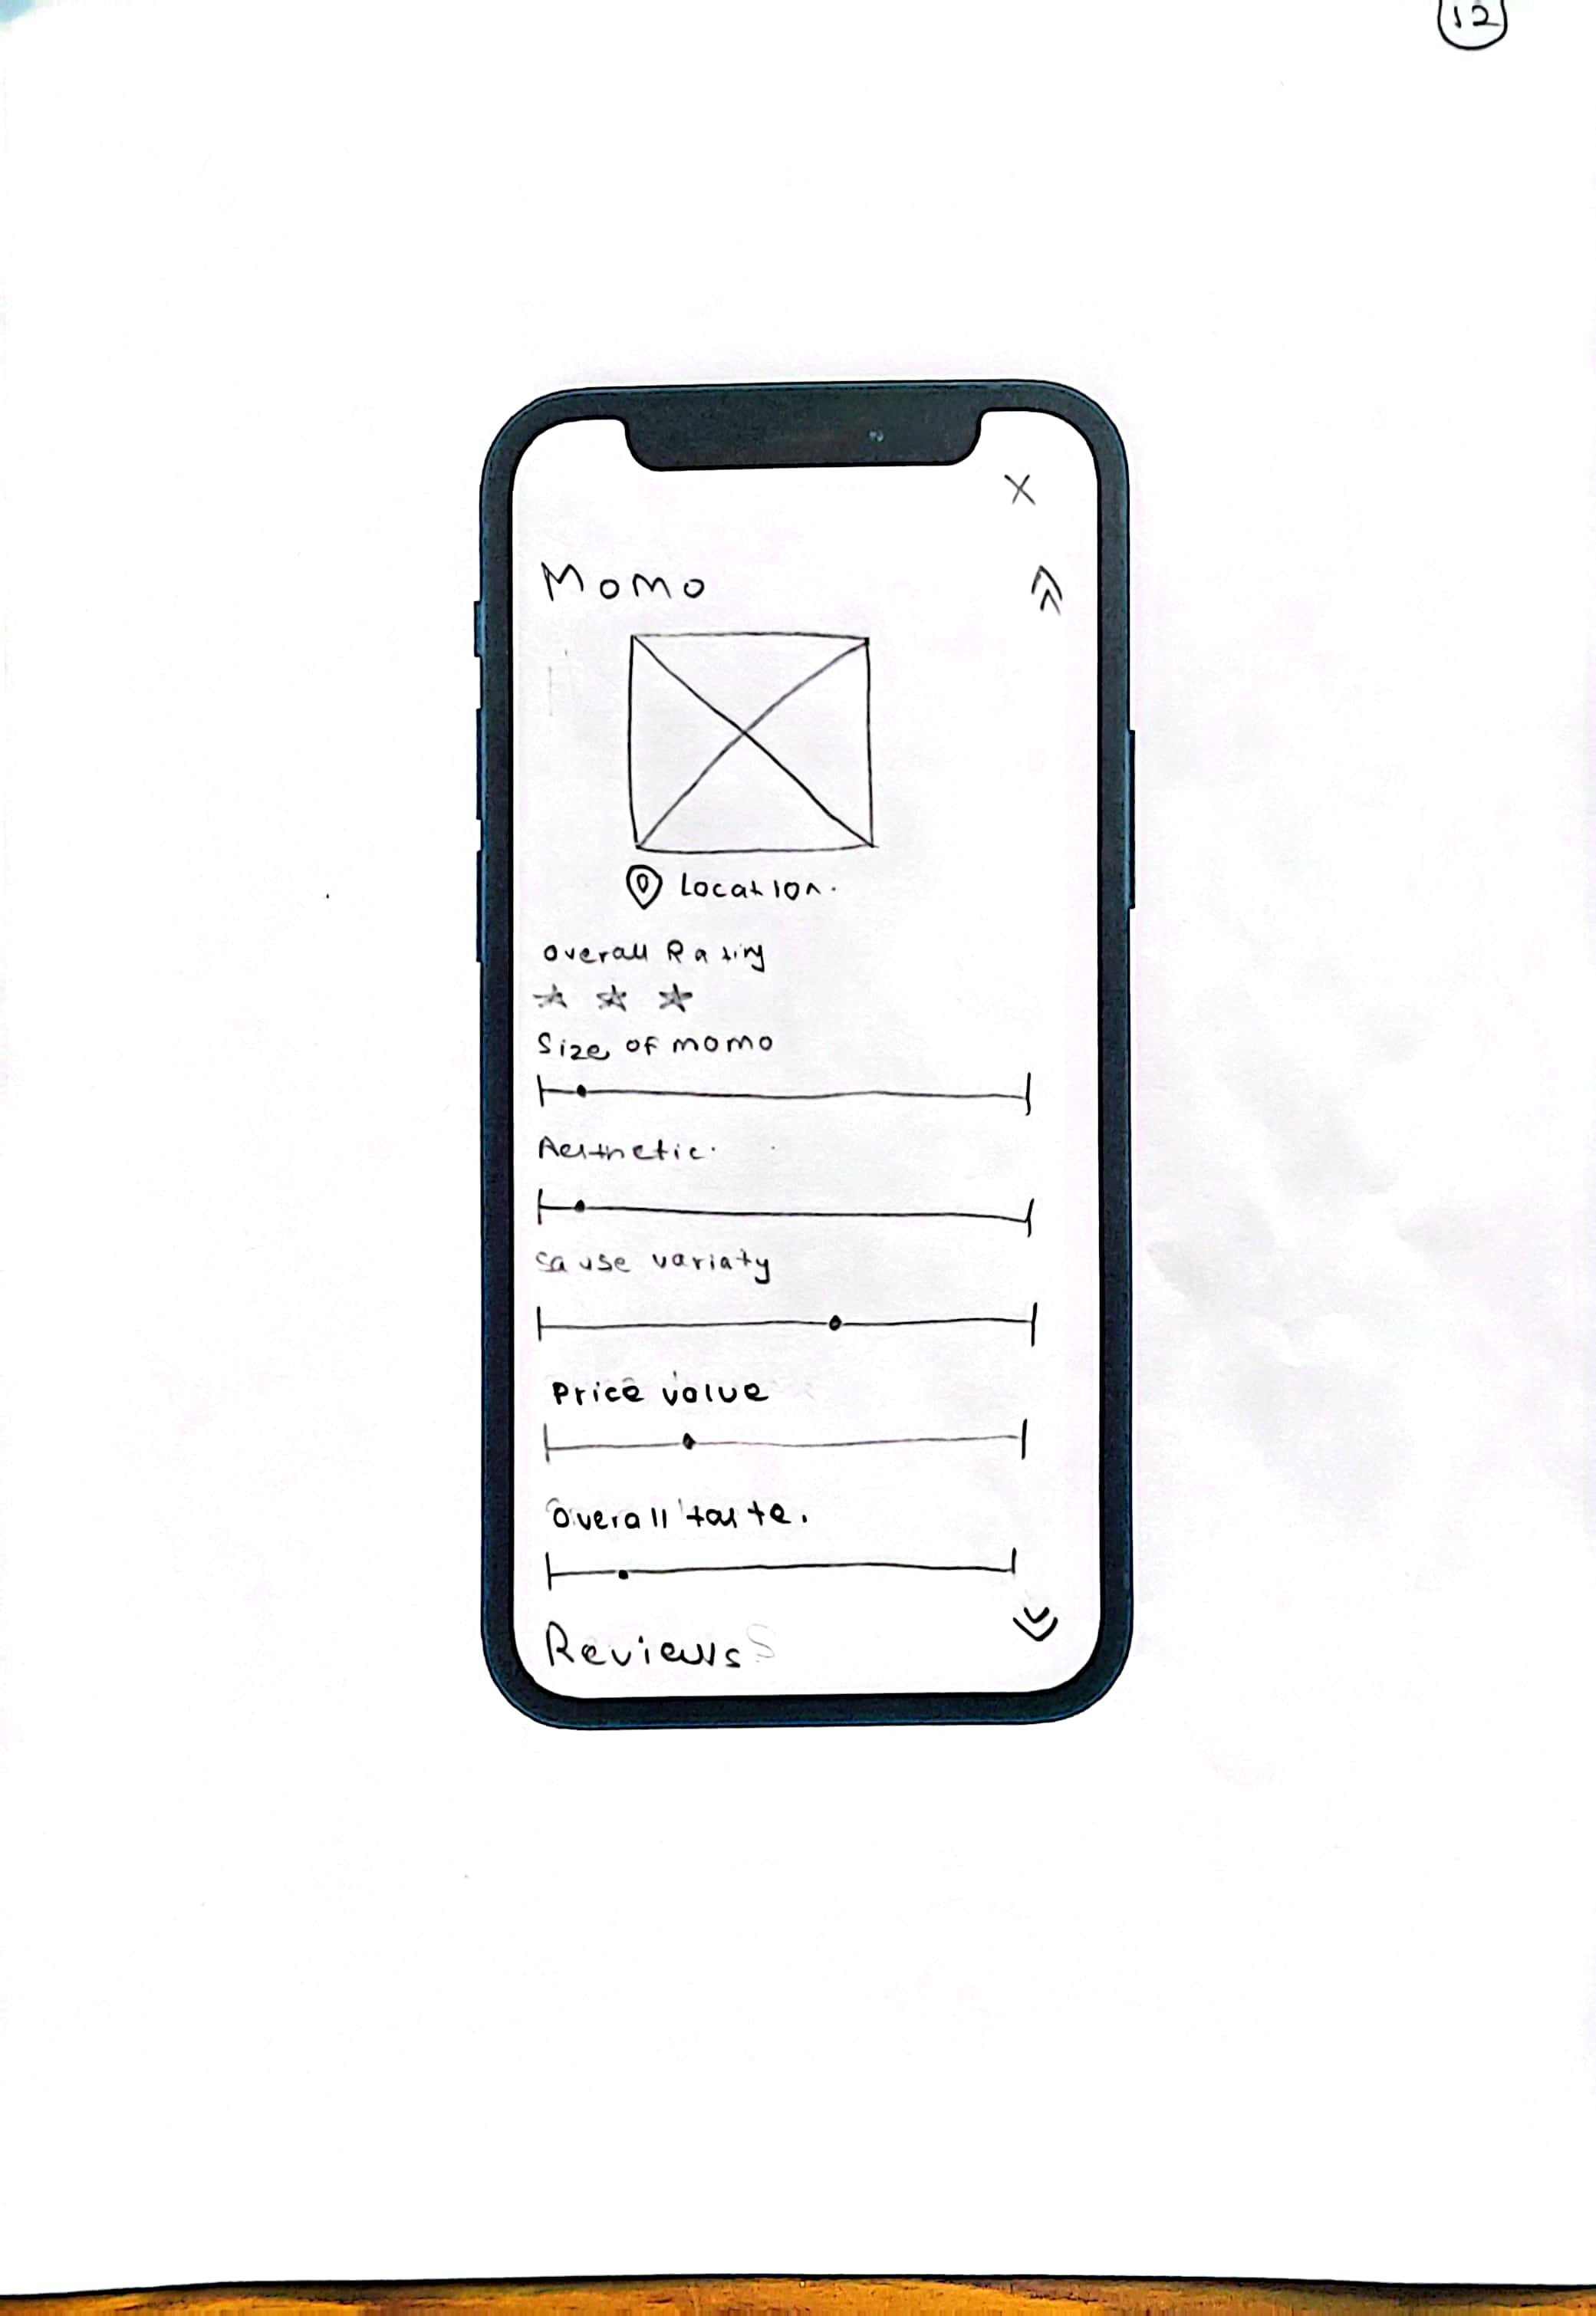 12
X
Momo
Location.
Overall Rating
Size of momo
Aesthetic.
sause variaty
Price value
Overall taste.
Reviews